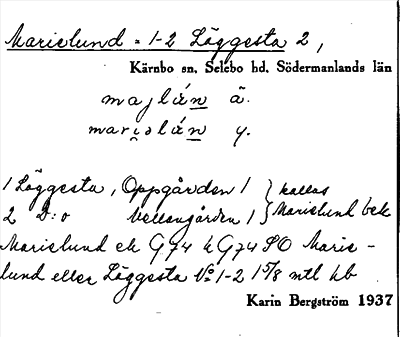 Marielund = 1-2 Läggesta 2,
Kärnbo sn, Selebo hd, Södermanlands län
majlún ä.
mariəlún y.
1 Läggesta, Oppgården / } kallas
2 D:o Mellangården / } Marielund bek
Marielund ek G74 h G74 SO Marie-
lund eller Läggesta No 1-2 1 5/8 mtl hb
Karin Bergström 1937